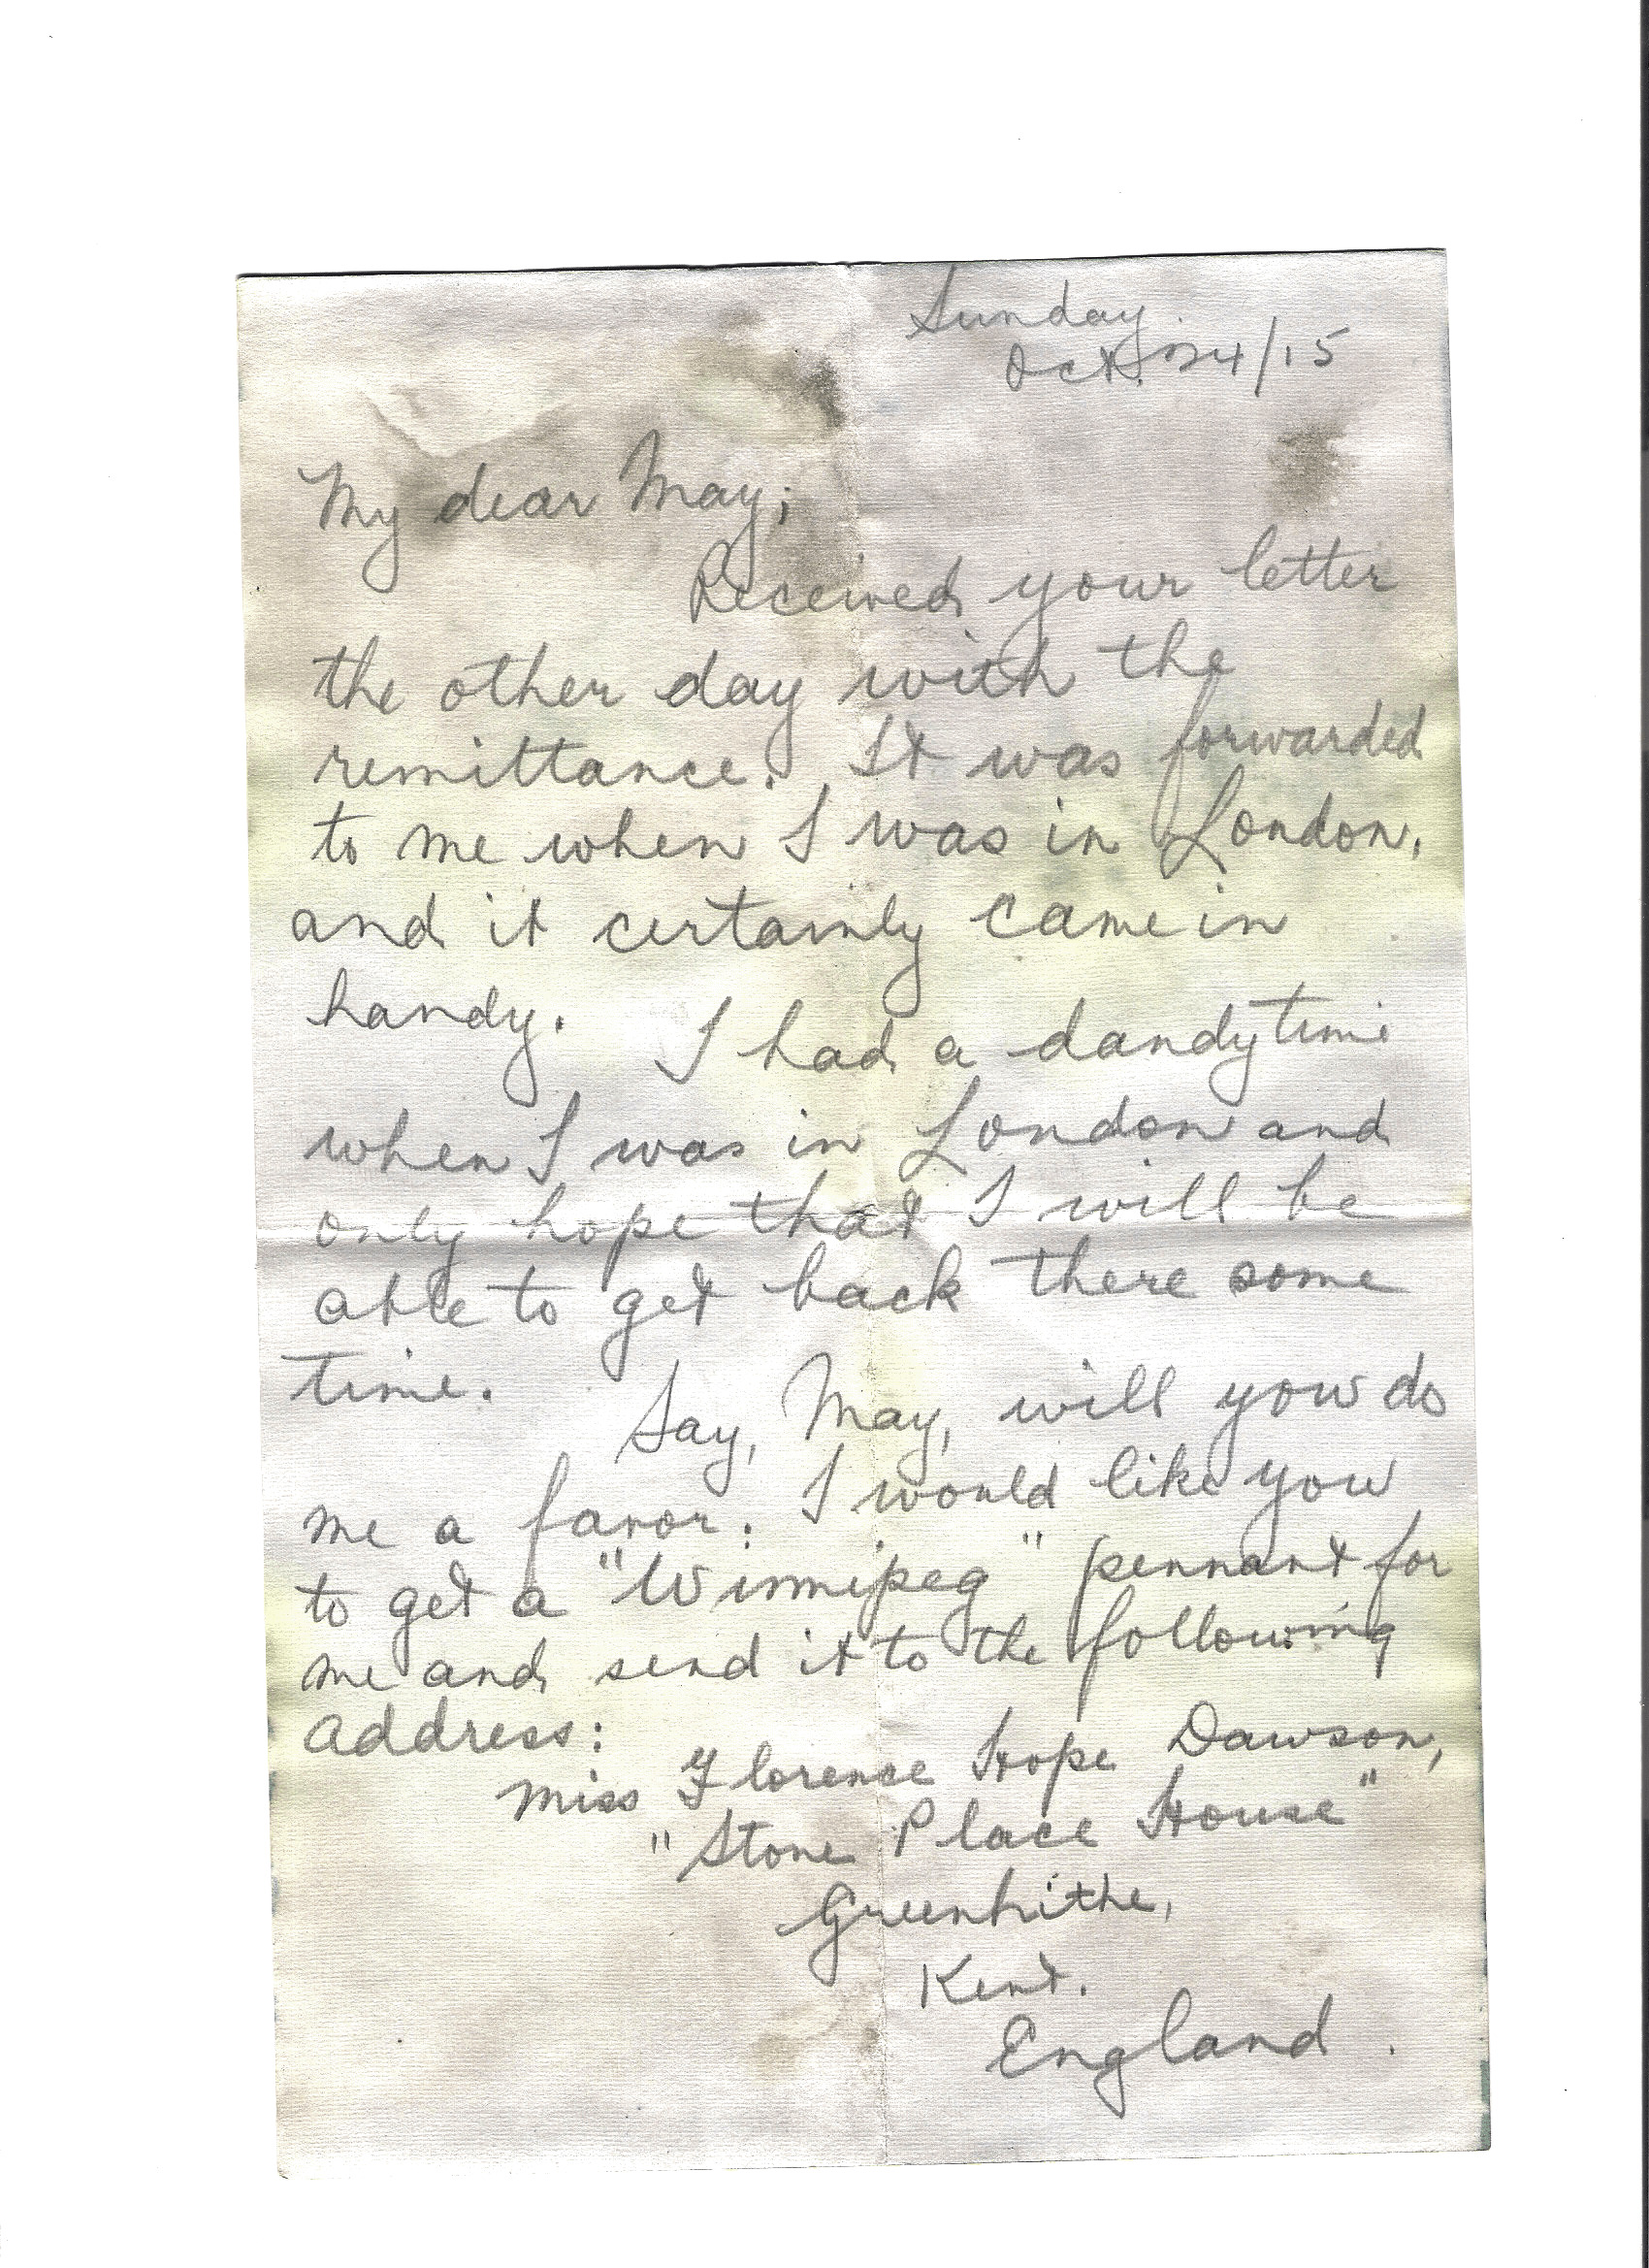 Sunday.
Oct. 24/15
My dear May;
Received your letter
the other day with the
remittance. It was forwarded
to me when I was in London,
and it certainly came in
handy. I had a dandy time
when I was in London and
only hope that I will be
able to get back there some
time. Say, May, will you do
me a favor. I would like you
to get a "Winnipeg" pennant for
me and send it to the following
address:
Miss Florence Hope Dawson,
"Stone Place House"
Greenhithe,
Kent.
England.